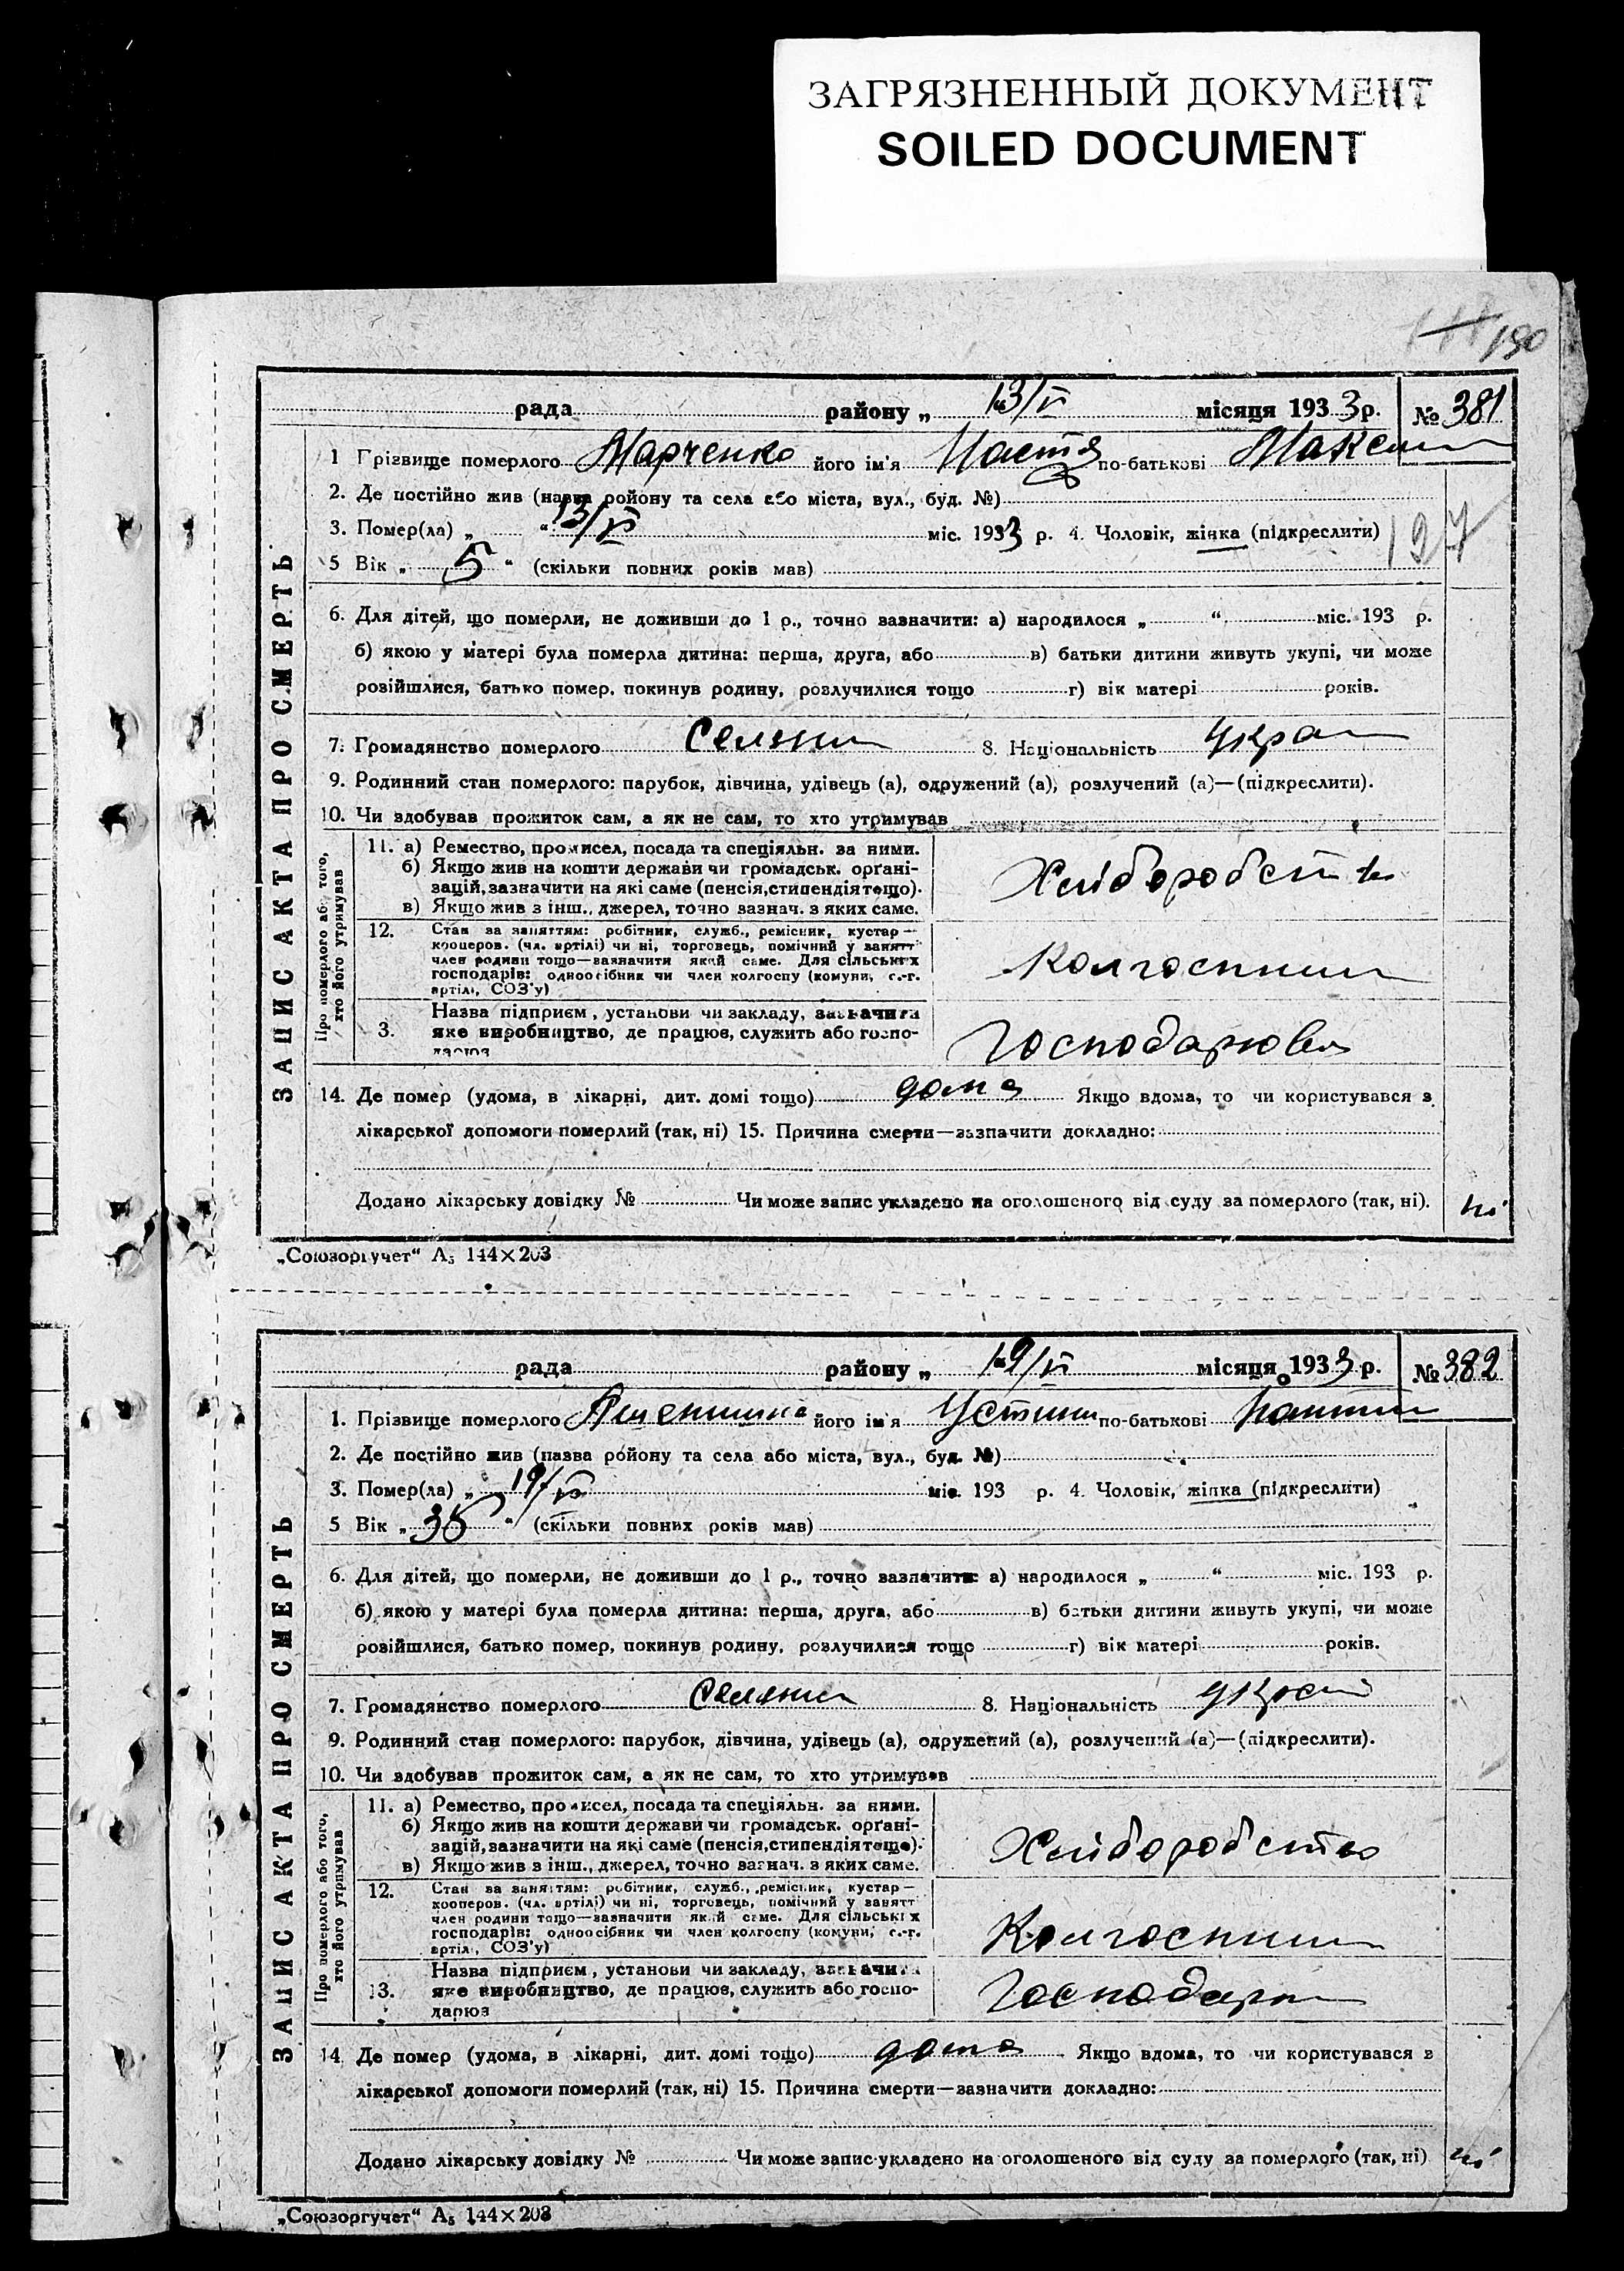 ЗАГРЯЗНЕННЫЙ ДОКУМЕНТ
SOILED DOCUMENT
190
рада району „ 13/VI місяця 1933 р. № 381
ЗАПИС АКТА ПРО СМЕРТЬ
1 Прізвище померлого Марченко його ім'я Настя по-батькові Максим
2. Де постійно жив (назва ройону та села або міста, вул., буд. №)
3. Помер(ла) „ “ 13/VI міс. 1933 р. 4. Чоловік, жінка (підкреслити)
197
5 Вік „ 5 “ (скільки повних років мав)
6. Для дітей, що померли, не доживши до 1 р., точно зазначити: а) народилося „ “ міс. 193 р.
б) якою у матері була померла дитина: перша, друга, або в) батьки дитини живуть укупі, чи може
розійшлися, батько помер, покинув родину, розлучилися тощо г) вік матері років.
7. Громадянство померлого Селянин 8. Національність Укра
9. Родинний стан померлого: парубок, дівчина, удівець (а), одружений (а), розлучений (а)—(підкреслити).
10. Чи здобував прожиток сам, а як не сам, то хто утримував
Про померлого або того,
хто його утримував
11. а) Ремество, промисел, посада та спеціяльн. за ними.
б) Якщо жив на кошти держави чи громадськ. орґані-
зацій, зазначити на які саме (пенсія, стипендія тощо).
в) Якщо жив з інш., джерел, точно зазнач. з яких саме.
Хліборобств
12. Стан за заняттям: робітник, служб., ремісник, кустар—
кооперов. (чл. артілі) чи ні, торговець, помічний у занятт
член родини тощо—зазначити який саме. Для сільських
господарів: одноосібник чи член колгоспу (комуни, с.-г.
артілі, СОЗ'у)
Колгоспник
3. Назва підприєм, установи чи закладу, зазначити
яке виробництво, де працює, служить або госпо-
дарює
Господарював
14. Де помер (удома, в лікарні, дит. домі тощо) дома Якщо вдома, то чи користувався з
лікарської допомоги померлий (так, ні) 15. Причина смерти—зазначити докладно:
Додано лікарську довідку № Чи може запис укладено на оголошеного від суду за померлого (так, ні). ні
„Союзоргучет“ А5 144×203
рада району „ 19/VI місяця 1933 р. № 382
ЗАПИС АКТА ПРО СМЕРТЬ
1. Прізвище померлого його ім'я Устини по-батькові
2. Де постійно жив (назва ройону та села або міста, вул., буд. №)
3. Помер(ла) „ 19/VI міс. 193 р. 4. Чоловік, жінка (підкреслити)
5 Вік „ 35 “ (скільки повних років мав)
6. Для дітей, що померли, не доживши до 1 р., точно зазначити: а) народилося „ “ міс. 193 р.
б) якою у матері була померла дитина: перша, друга, або в) батьки дитини живуть укупі, чи може
розійшлися, батько помер, покинув родину, розлучилися тощо г) вік матері років.
7. Громадянство померлого Селянин 8. Національність
9. Родинний стан померлого: парубок, дівчина, удівець (а), одружений (а), розлучений (а)—(підкреслити).
10. Чи здобував прожиток сам, а як не сам, то хто утримував
Про померлого або того,
хто його утримував
11. а) Ремество, промисел, посада та спеціяльн. за ними.
б) Якщо жив на кошти держави чи громадськ. орґані-
зацій, зазначити на які саме (пенсія, стипендія тощо).
в) Якщо жив з інш., джерел, точно зазнач. з яких саме.
Хліборобство
12. Стан за заняттям: робітник, служб., ремісник, кустар—
кооперов. (чл. артілі) чи ні, торговець, помічний у занятт
член родини тощо—зазначити який саме. Для сільських
господарів: одноосібник чи член колгоспу (комуни, с.-г.
артілі, СОЗ'у)
Колгоспник
13. Назва підприєм, установи чи закладу, зазначити
яке виробництво, де працює, служить або госпо-
дарює
Господарю
14 Де помер (удома, в лікарні, дит. домі тощо) дома Якщо вдома, то чи користувався з
лікарської допомоги померлий (так, ні) 15. Причина смерти—зазначити докладно:
Додано лікарську довідку № Чи може запис укладено на оголошеного від суду за померлого (так, ні) ні
„Союзоргучет“ А5 144×203